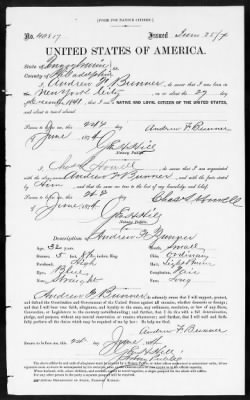 [FORM FOR NATIVE CITIZEN.]
No. 40817 Issued June 25/74
UNITED STATES OF AMERICA.
State of Pennsylvania
County of Philadelphia
I, Andrew F. Bunner, do swear that I was born in
New York City, on or about the 29 day
of December 1841, that I am a NATIVE AND LOYAL CITIZEN OF THE UNITED STATES,
and about to travel abroad.
Sworn to before me, this 24th day Andrew F Bunner
of June 1874
Notary Public
I, Chas S Howell, do swear that I am acquainted
with the above-named Andrew F Bunner and with the facts stated by
him and that the same are true to the best of my knowledge and belief.
Sworn to before me, this 24 day Chas S Howell
of June 1874
Notary Public
Description of Andrew F. Bunner
Age, 32 years. Mouth, Small
Stature, 5 feet inches, Eng. Chin, Ordinary
Forehead, High Hair,
Eyes, Blue Complexion, Fair
Nose, Straight Face, Long
I, Andrew F. Bunner, do solemnly swear that I will support, protect,
and defend the Constitution and Government of the United States against all enemies, whether domestic or foreign;
and that I will bear true faith, allegiance, and loyalty to the same, any ordinance, resolution, or law of any State,
Convention, or Legislature to the contrary notwithstanding; and further, that I do this with a full determination,
pledge, and purpose, without any mental reservation or evasion whatsoever; and further, that I will well and faith-
fully perform all the duties which may be required of me by law: So help me God.
Andrew F Bunner
Sworn to before me, this 24 day of June 1874
Notary Public